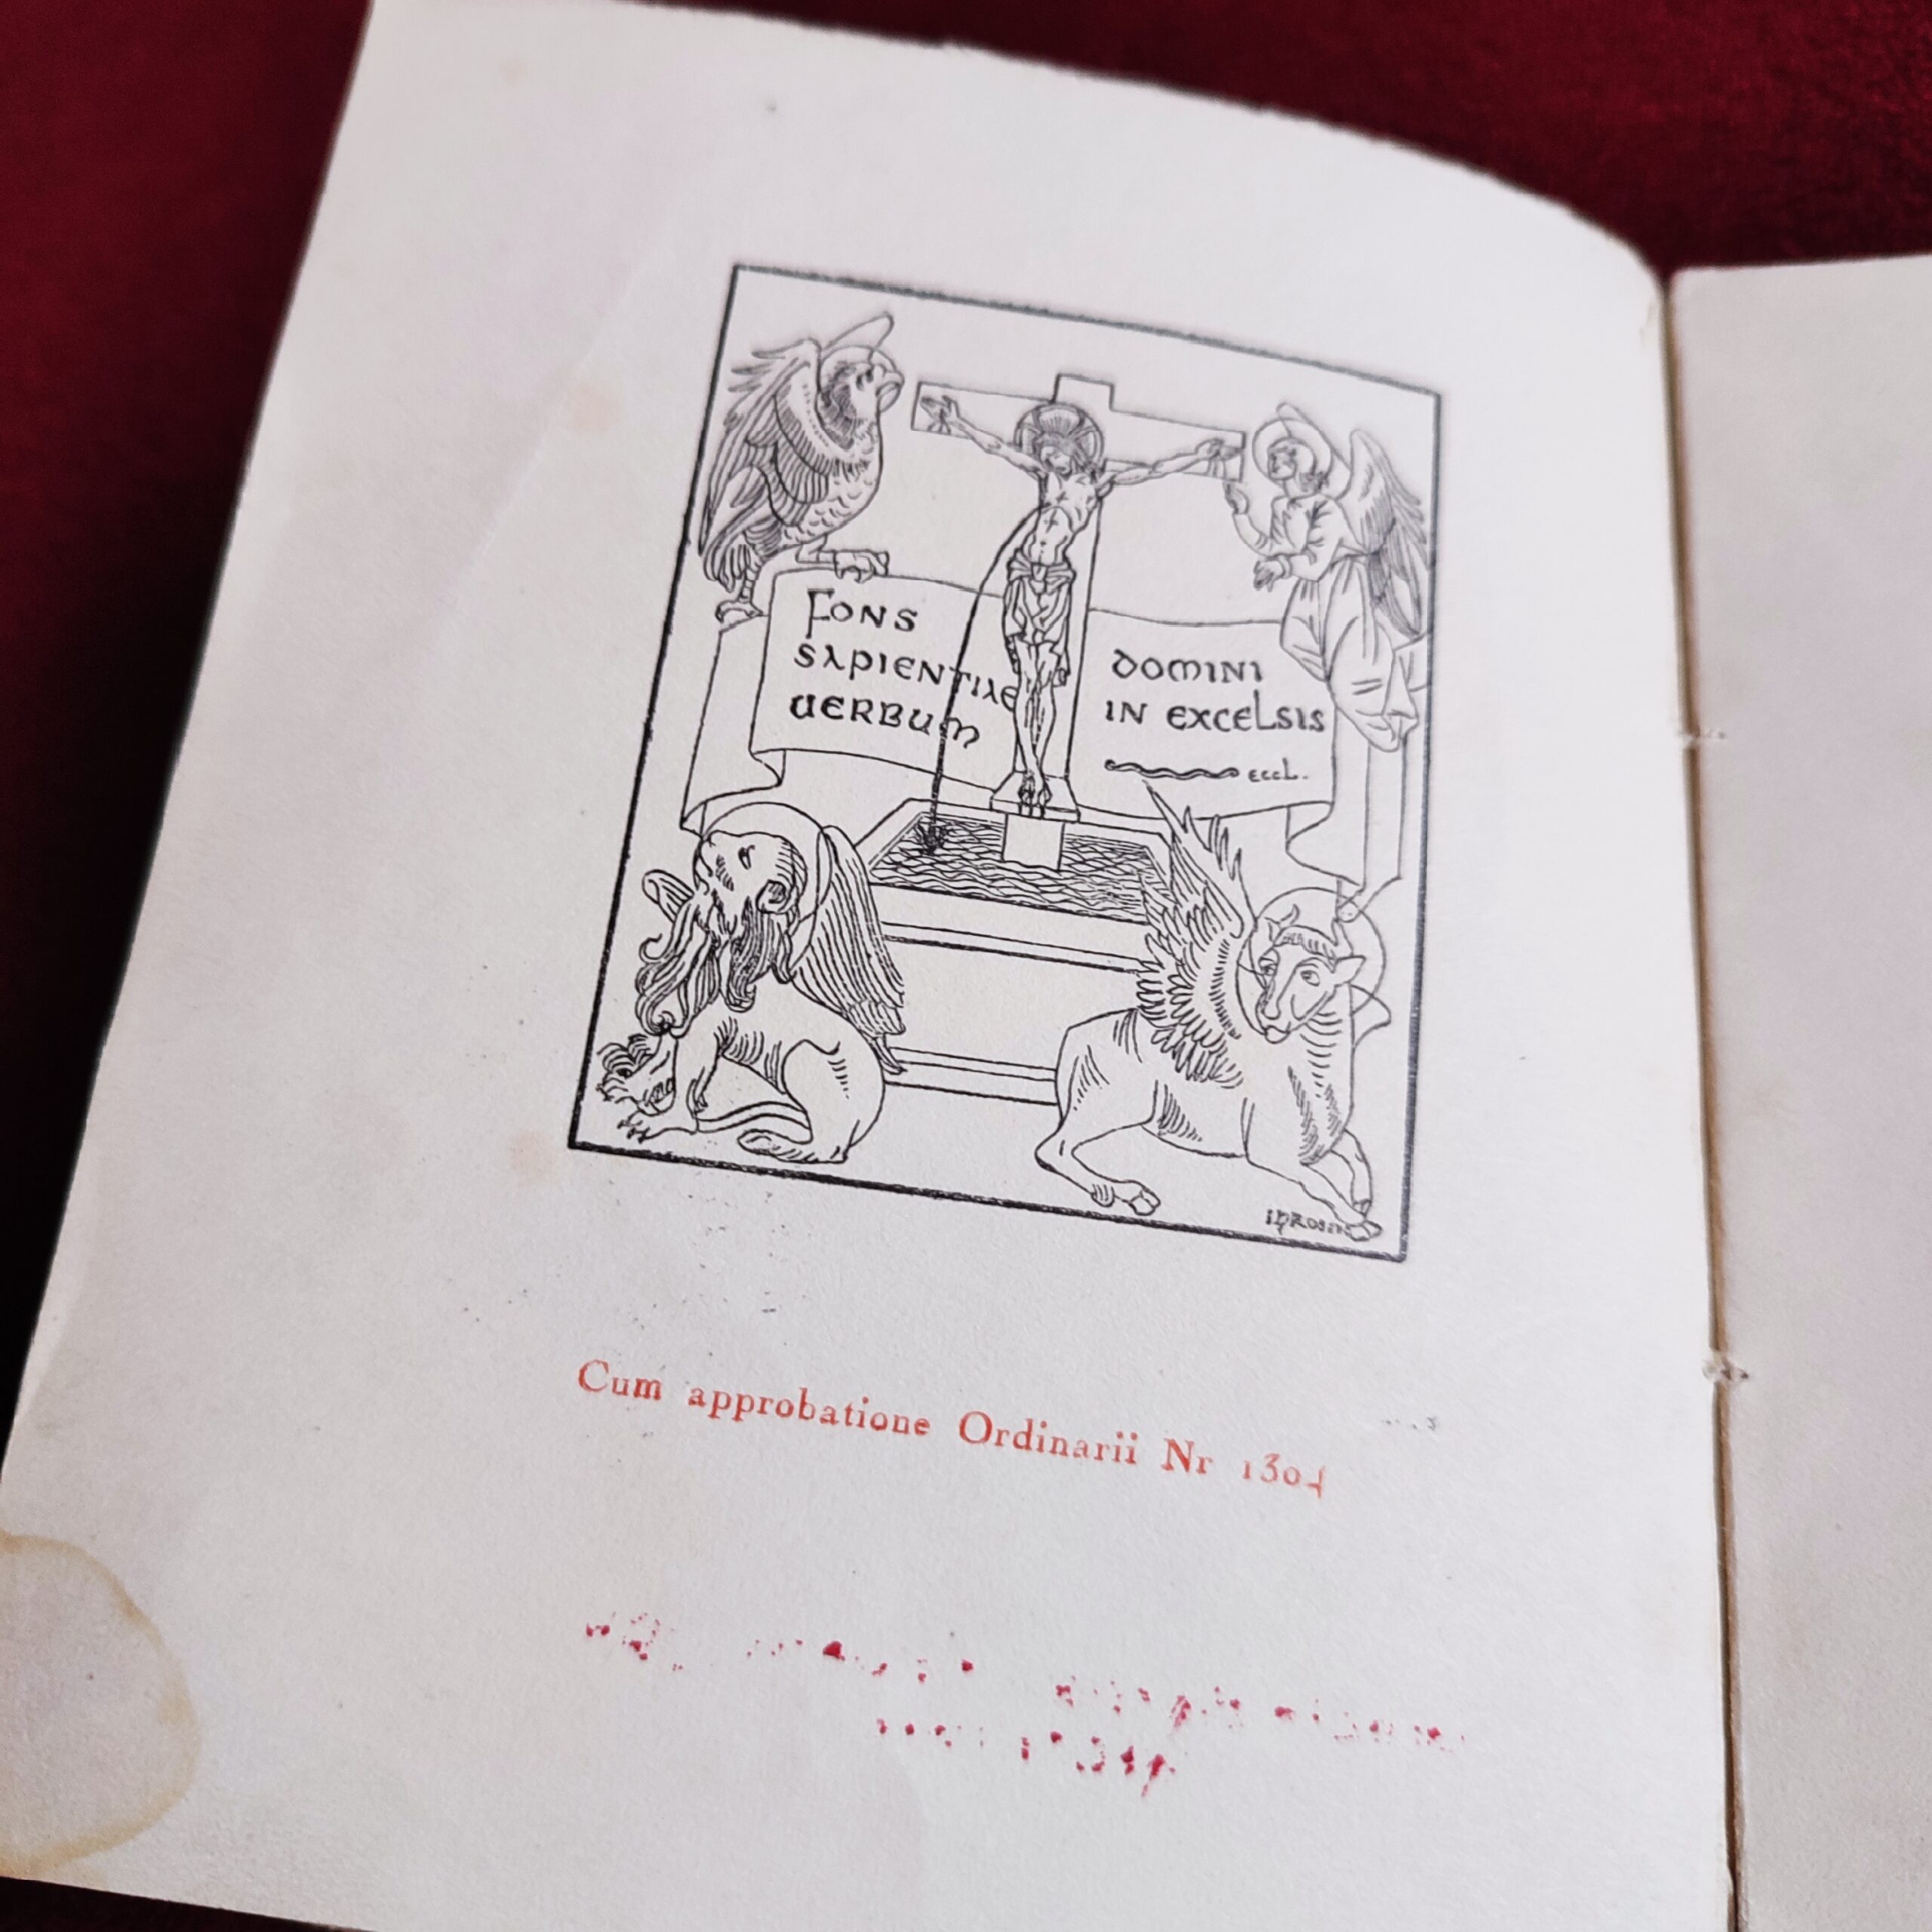 FONS
SAPIENTIAE
VERBUM
DOMINI
IN EXCELSIS
ECCL.
Cum approbatione Ordinarii Nr 1304